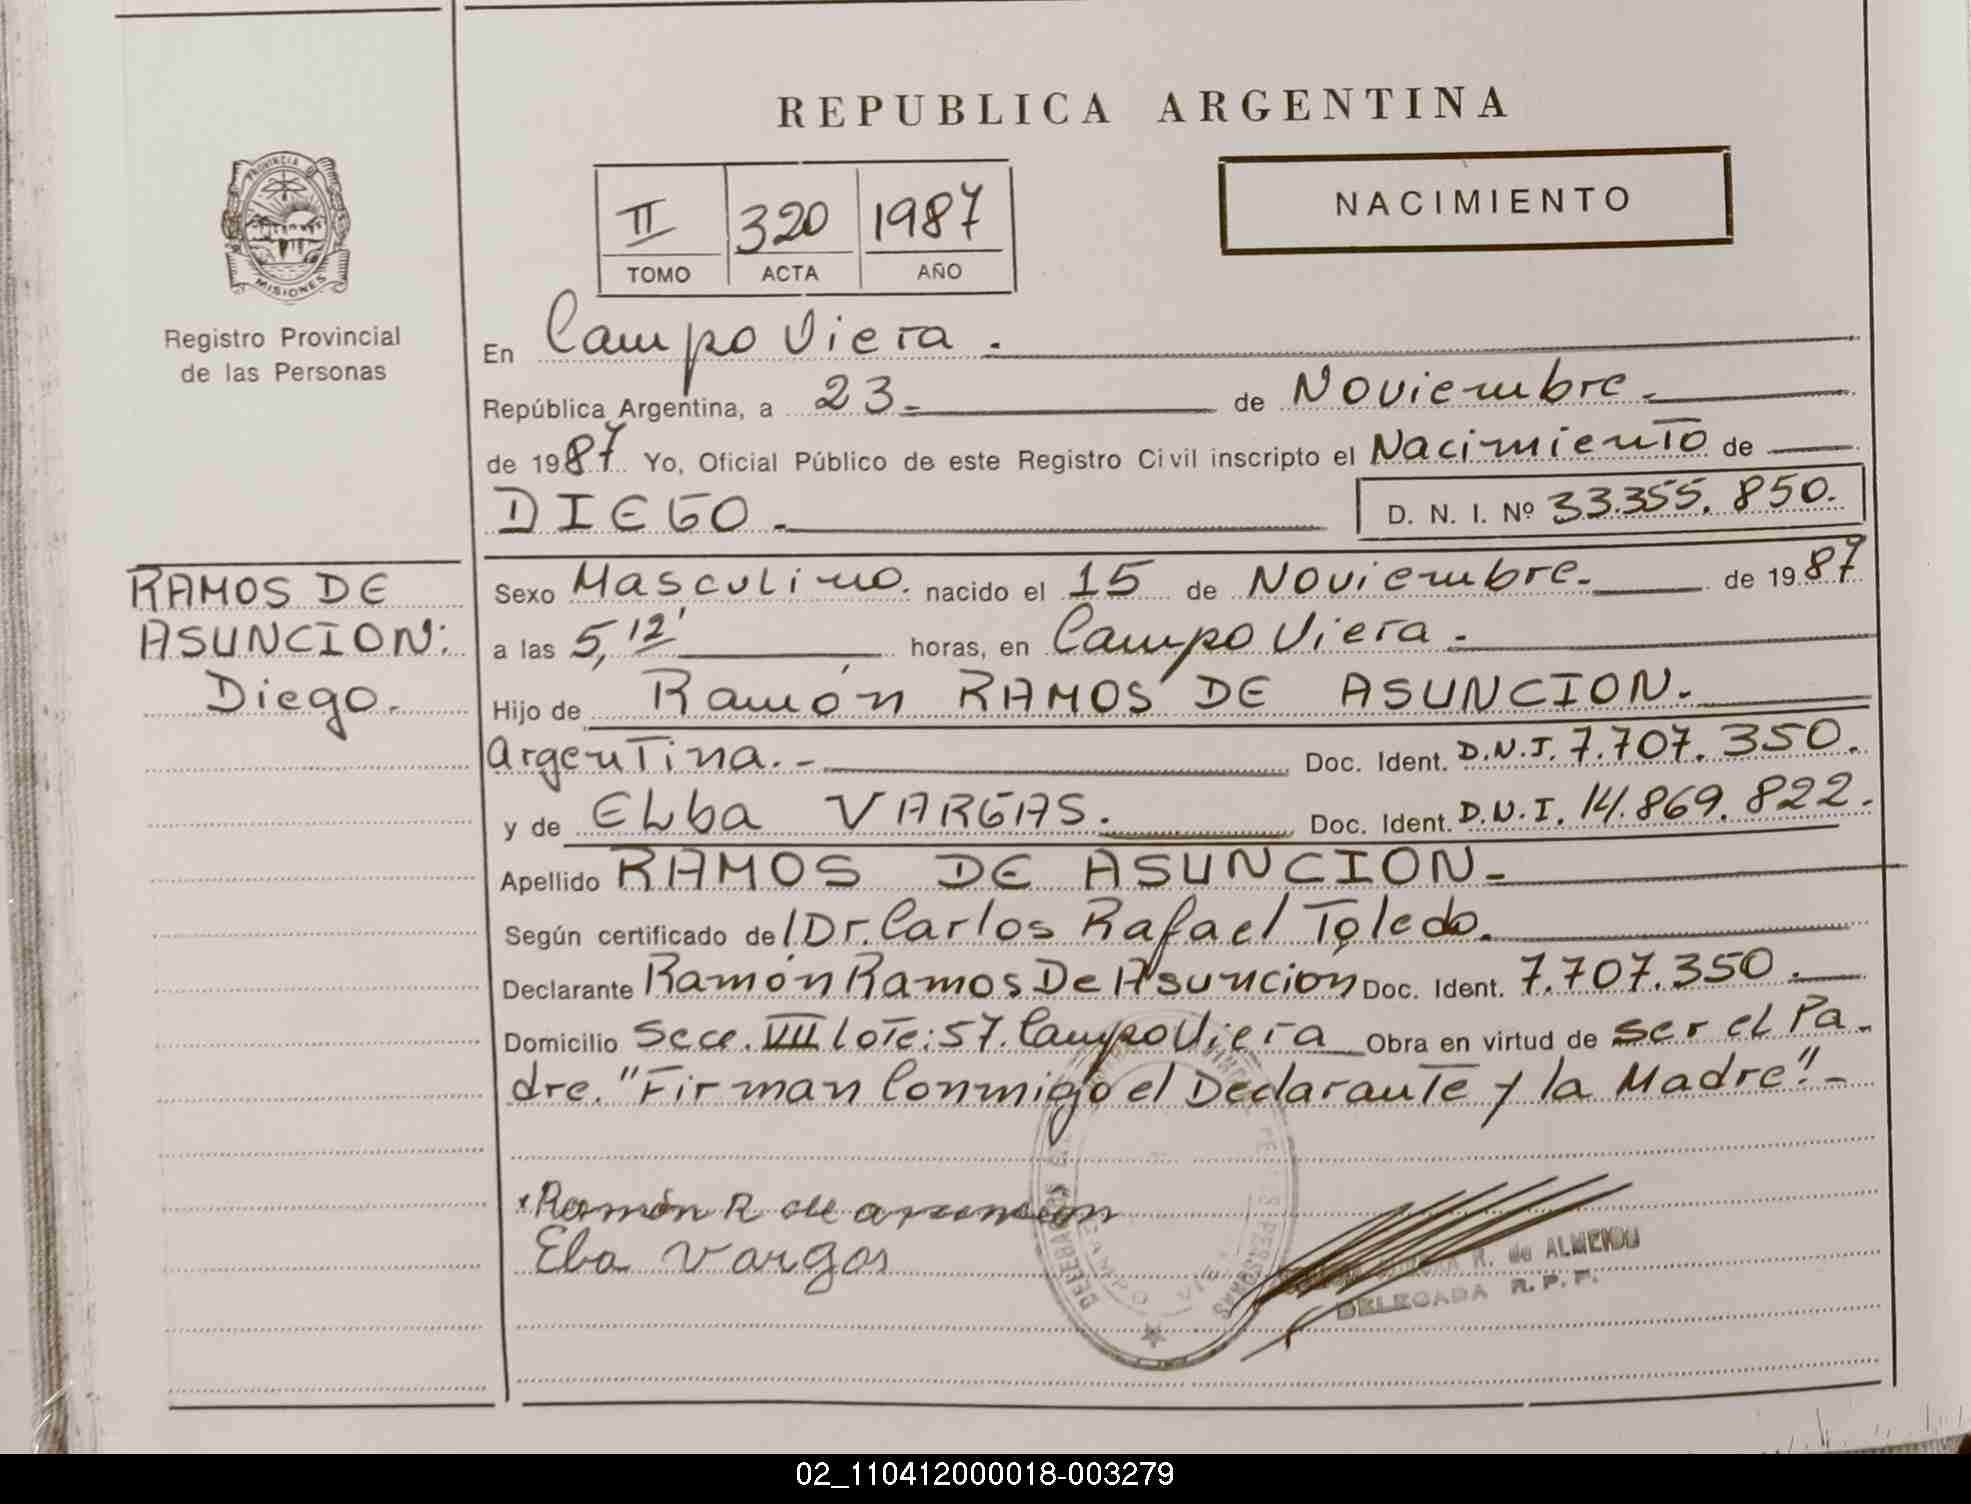 REPUBLICA ARGENTINA
PROVINCIA DE
MISIONES
Registro Provincial
de las Personas
II 320 1987
TOMO ACTA AÑO
NACIMIENTO
En Campo Viera.
República Argentina, a 23 de Noviembre.
de 1987 Yo, Oficial Público de este Registro Civil inscripto el Nacimiento de
DIEGO. D. N. I. Nº 33.355.850.
RAMOS DE
ASUNCION:
Diego.
Sexo Masculino. nacido el 15 de Noviembre. de 1987
a las 5,12' horas, en Campo Viera.
Hijo de Ramón RAMOS DE ASUNCION.
Argentina.- Doc. Ident. D.N.I. 7.707.350.
y de ELba VARGAS. Doc. Ident. D.N.I. 14.869.822.
Apellido RAMOS DE ASUNCION
Según certificado de Dr. Carlos Rafael Toledo.
Declarante Ramón Ramos De Asunción Doc. Ident. 7.707.350.
Domicilio Secc. VII Lote: 57. Campo Viera Obra en virtud de ser el Pa-
dre. "Firman Conmigo el Declarante y la Madre".-
Ramón R de asuncion
Elba Vargas
R. de ALMEIDA
DELEGADA R. P. P.
02_110412000018-003279